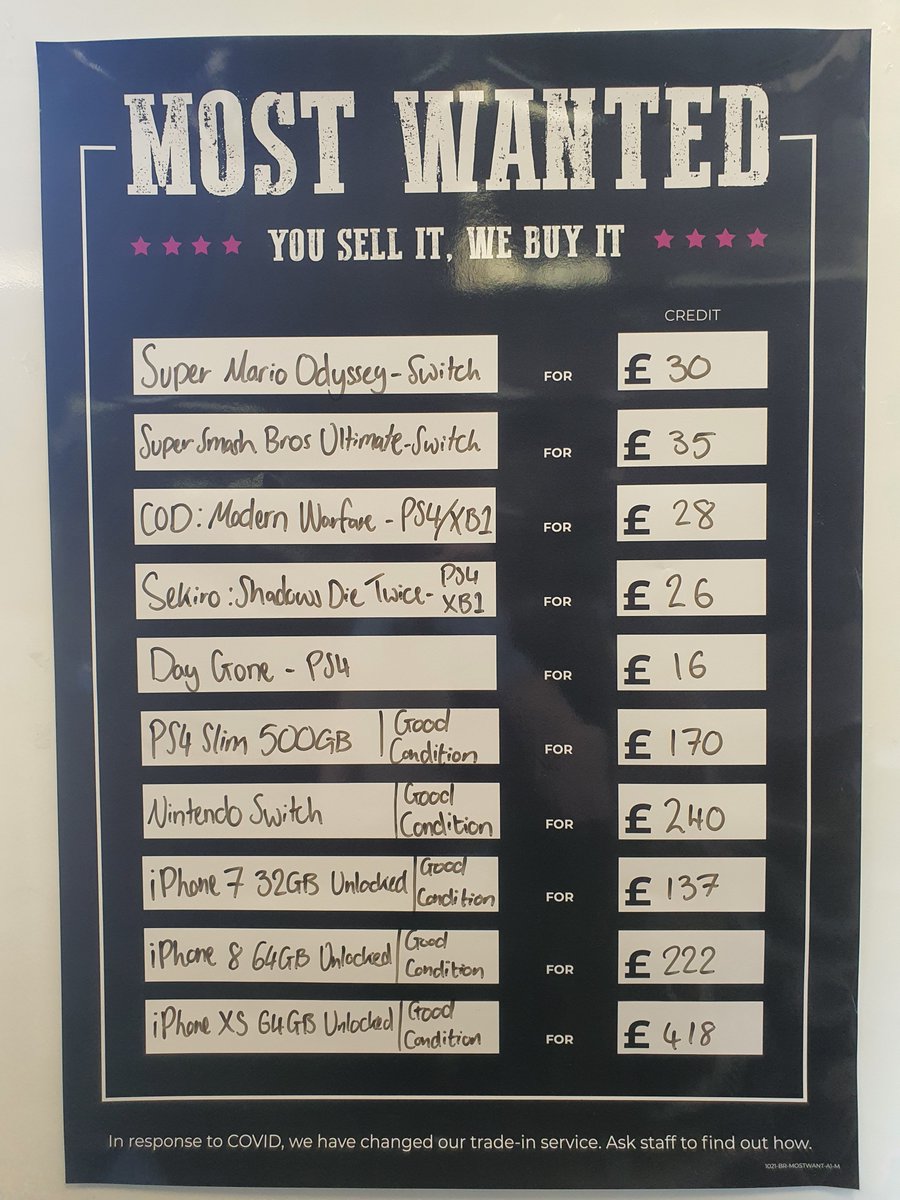 MOST WANTED
YOU SELL IT, WE BUY IT
CREDIT
Super Mario Odyssey - Switch FOR £ 30
Super Smash Bros Ultimate - Switch FOR £ 35
COD: Modern Warfare - PS4/XB1 FOR £ 28
Sekiro: Shadows Die Twice - PS4 XB1 FOR £ 26
Day Gone - PS4 FOR £ 16
PS4 Slim 500GB | Good Condition FOR £ 170
Nintendo Switch | Good Condition FOR £ 240
iPhone 7 32GB Unlocked | Good Condition FOR £ 137
iPhone 8 64GB Unlocked | Good Condition FOR £ 222
iPhone XS 64GB Unlocked | Good Condition FOR £ 418
In response to COVID, we have changed our trade-in service. Ask staff to find out how.
1021-BR-MOSTWANT-A1-M